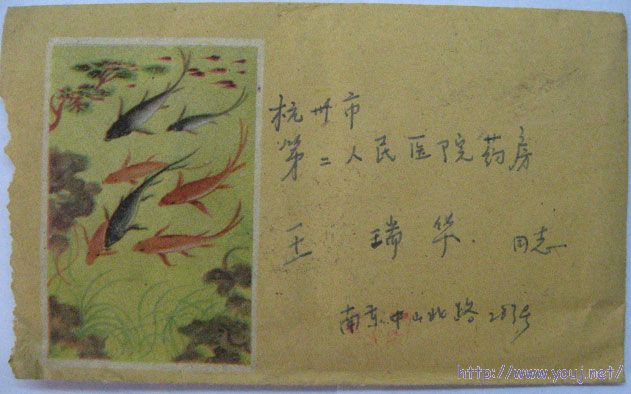 杭州市
第二人民医院药房
王瑞华 同志
南京中山北路283号
http://www.youj.net/